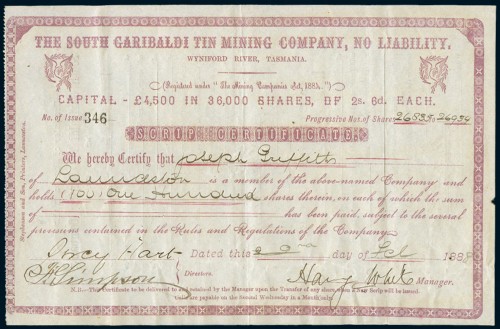 THE SOUTH GARIBALDI TIN MINING COMPANY, NO LIABILITY.
WYNIFORD RIVER, TASMANIA.
(Registered under "The Mining Companies Act, 1884.")
CAPITAL - £4,500 IN 36,000 SHARES, OF 2s. 6d. EACH.
No. of Issue 346 Progressive Nos. of Shares
SCRIP CERTIFICATE.
We hereby Certify that Joseph
of Launceston is a member of the above-named Company and
holds (100) One Hundred shares therein, on each of which the sum
of has been paid, subject to the several
provisions contained in the Rules and Regulations of the Company.
Percy Hart Dated this day of Feb 188
Simpson Directors. Harry White Manager.
N.B.—This Certificate to be delivered to and retained by the Manager upon the Transfer of any share, when a new Scrip will be issued.
Calls are payable on the Second Wednesday in a Month
Stephenson and Son, Printers, Launceston.